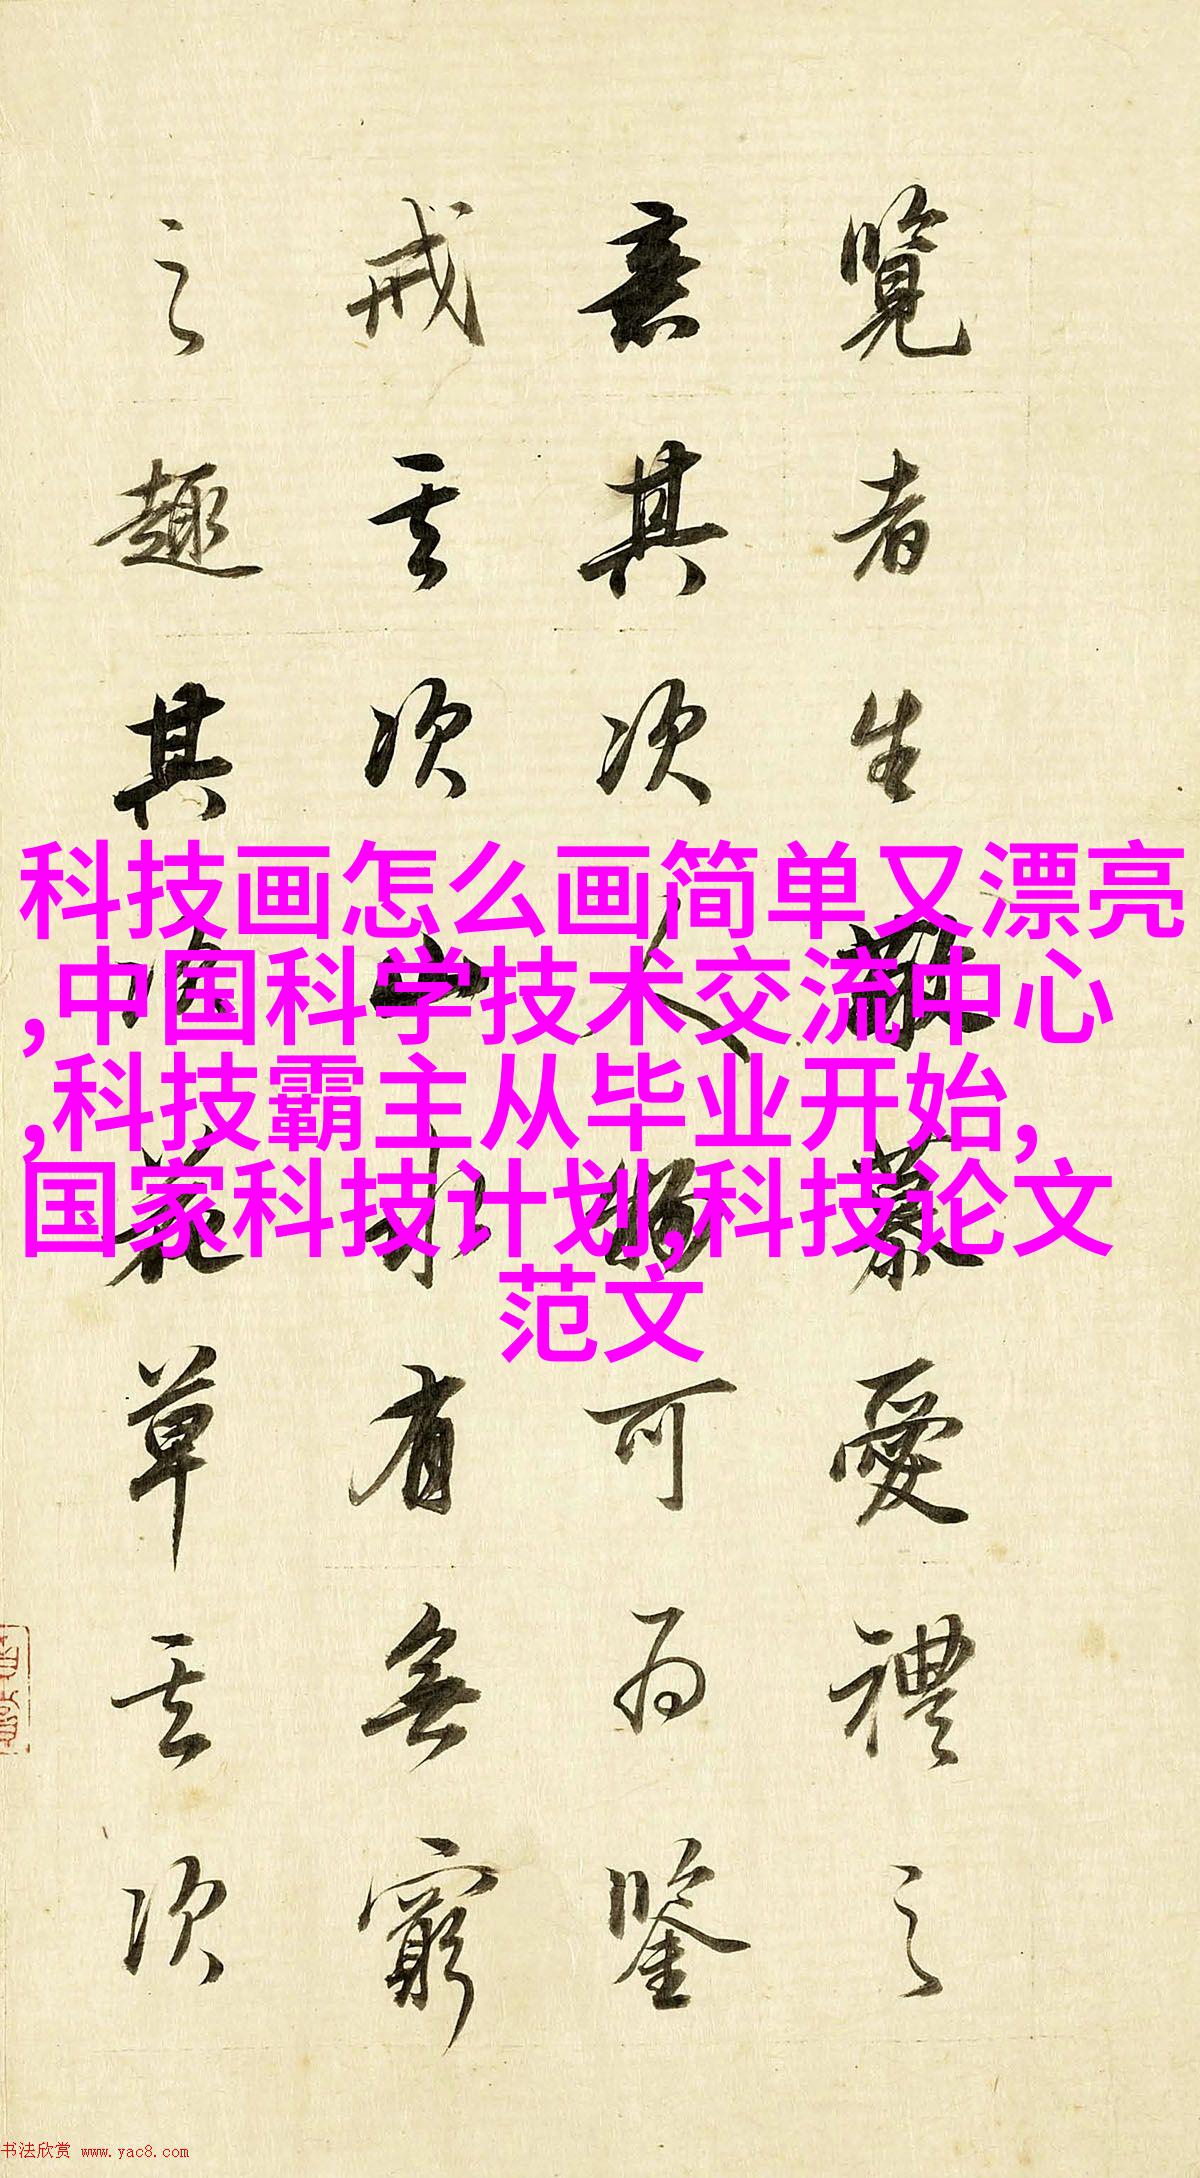 覽者生敬慕愛禮之
意其次人物可為鑒
戒其次山水有無窮
之趣其次花草其次
科技画怎么画简单又漂亮
,中国科学技术交流中心
,科技霸主从毕业开始,
国家科技计划,科技论文
范文
书法欣赏 www.yac8.com